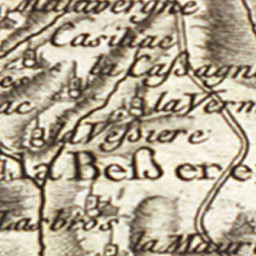 Malavergne
Casilhac
la Caßagn
es
la Verm
ac
la Veßiere
la Beßere
Lasbros
la Mauri